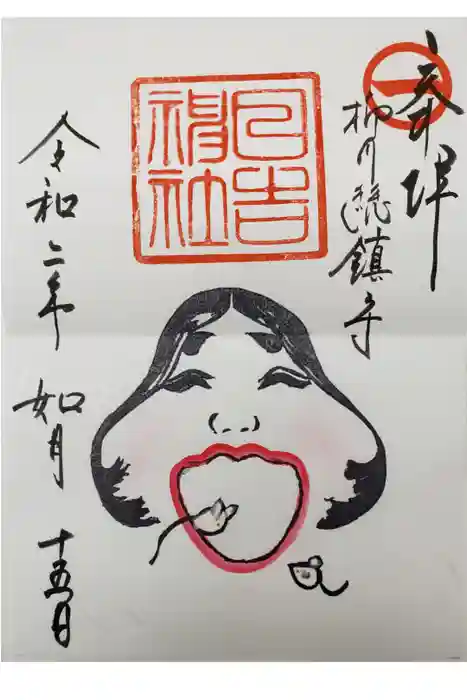 奉拝
柳川総鎮守
日吉神社
令和二年 如月 十五日